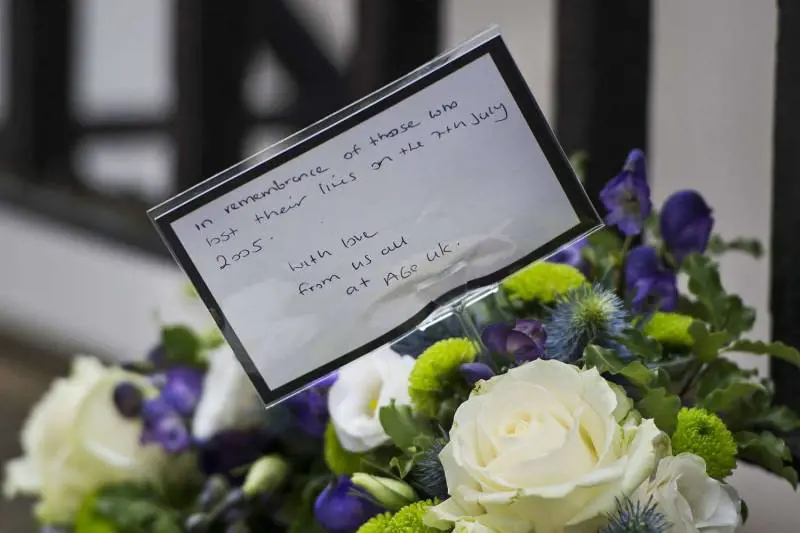 In remembrance of those who
lost their lives on the 7th July
2005.
With love
from us all
at AGE UK.